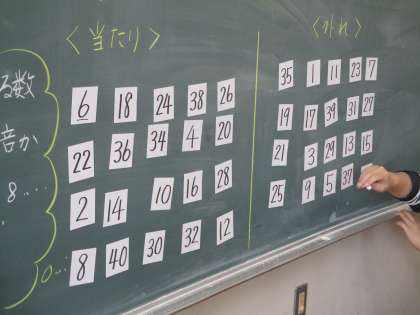 <当たり>
6 18 24 38 26
22 36 34 4 20
2 14 10 16 28
8 40 30 32 12
<外れ>
35 1 11 23 7
19 17 39 31 27
21 3 29 13 15
25 9 5 37
る数
倍か
8....
0...